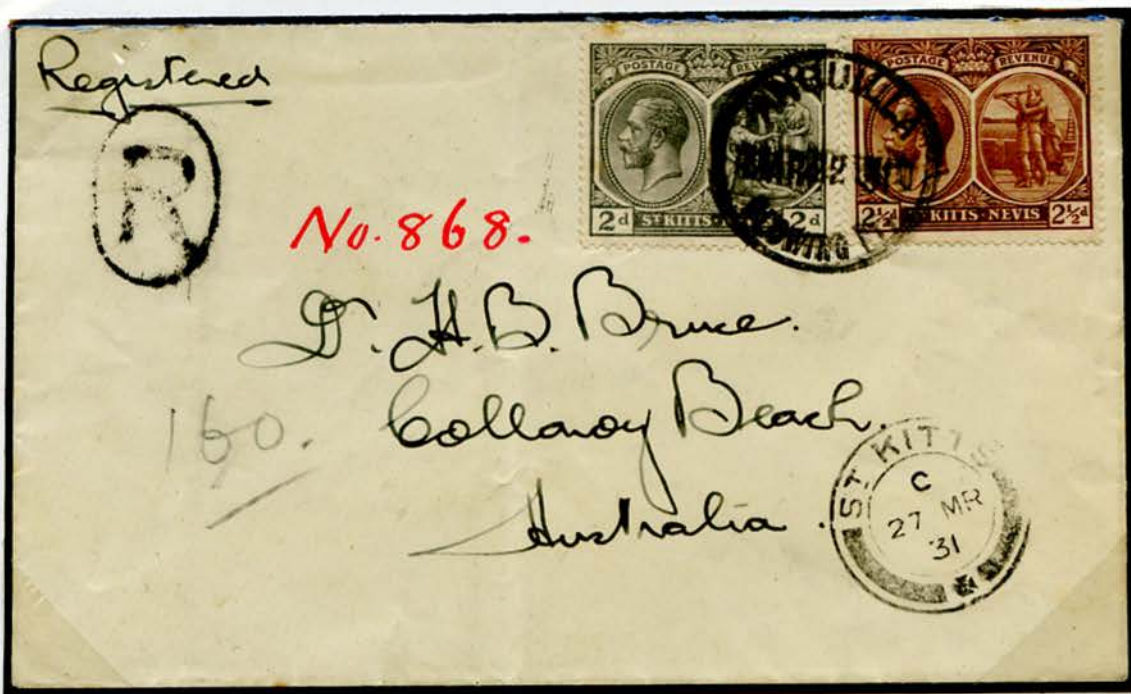 Registered
R
No. 868.
POSTAGE REVENUE
2d ST KITTS 2d
POSTAGE REVENUE
2½d ST KITTS·NEVIS 2½d
ANGUILLA
Dr. H. B. Bruce.
160.
Collaroy Beach.
Australia.
ST. KITTS
C
27 MR
31